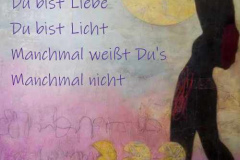 Du bist Liebe
Du bist Licht
Manchmal weißt Du's
Manchmal nicht